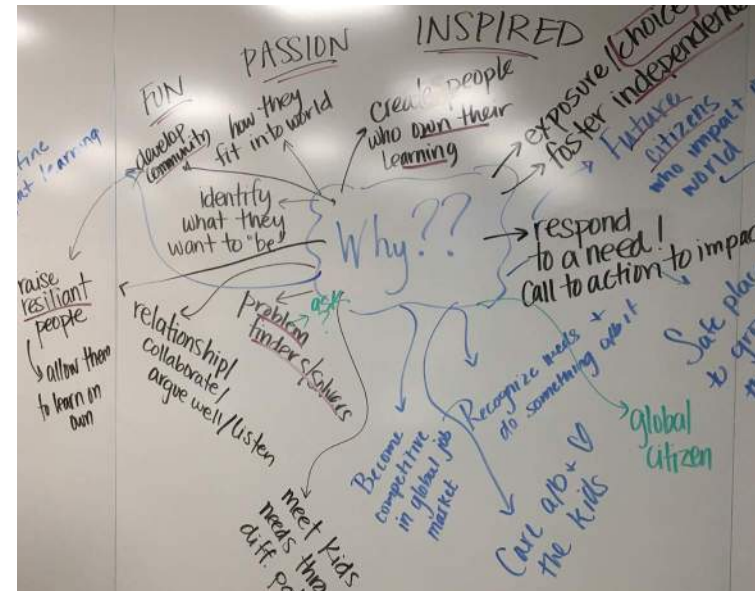 FUN
PASSION
INSPIRED
develop
community
how they
fit into world
create people
who own their
learning
exposure/choice
foster independence
Future
citizens
who impact
world
learning
identify
what they
want to "be"
Why??
respond
to a need!
call to action to impact
raise
resiliant
people
allow them
to learn on
own
relationship/
collaborate/
argue well/listen
ask
problem
finders/solvers
meet kids
needs
diff.
Become
competitive
in global job
market
Recognize needs +
do something ab/it
Care ab/+ ♡
the kids
global
citizen
Safe
to